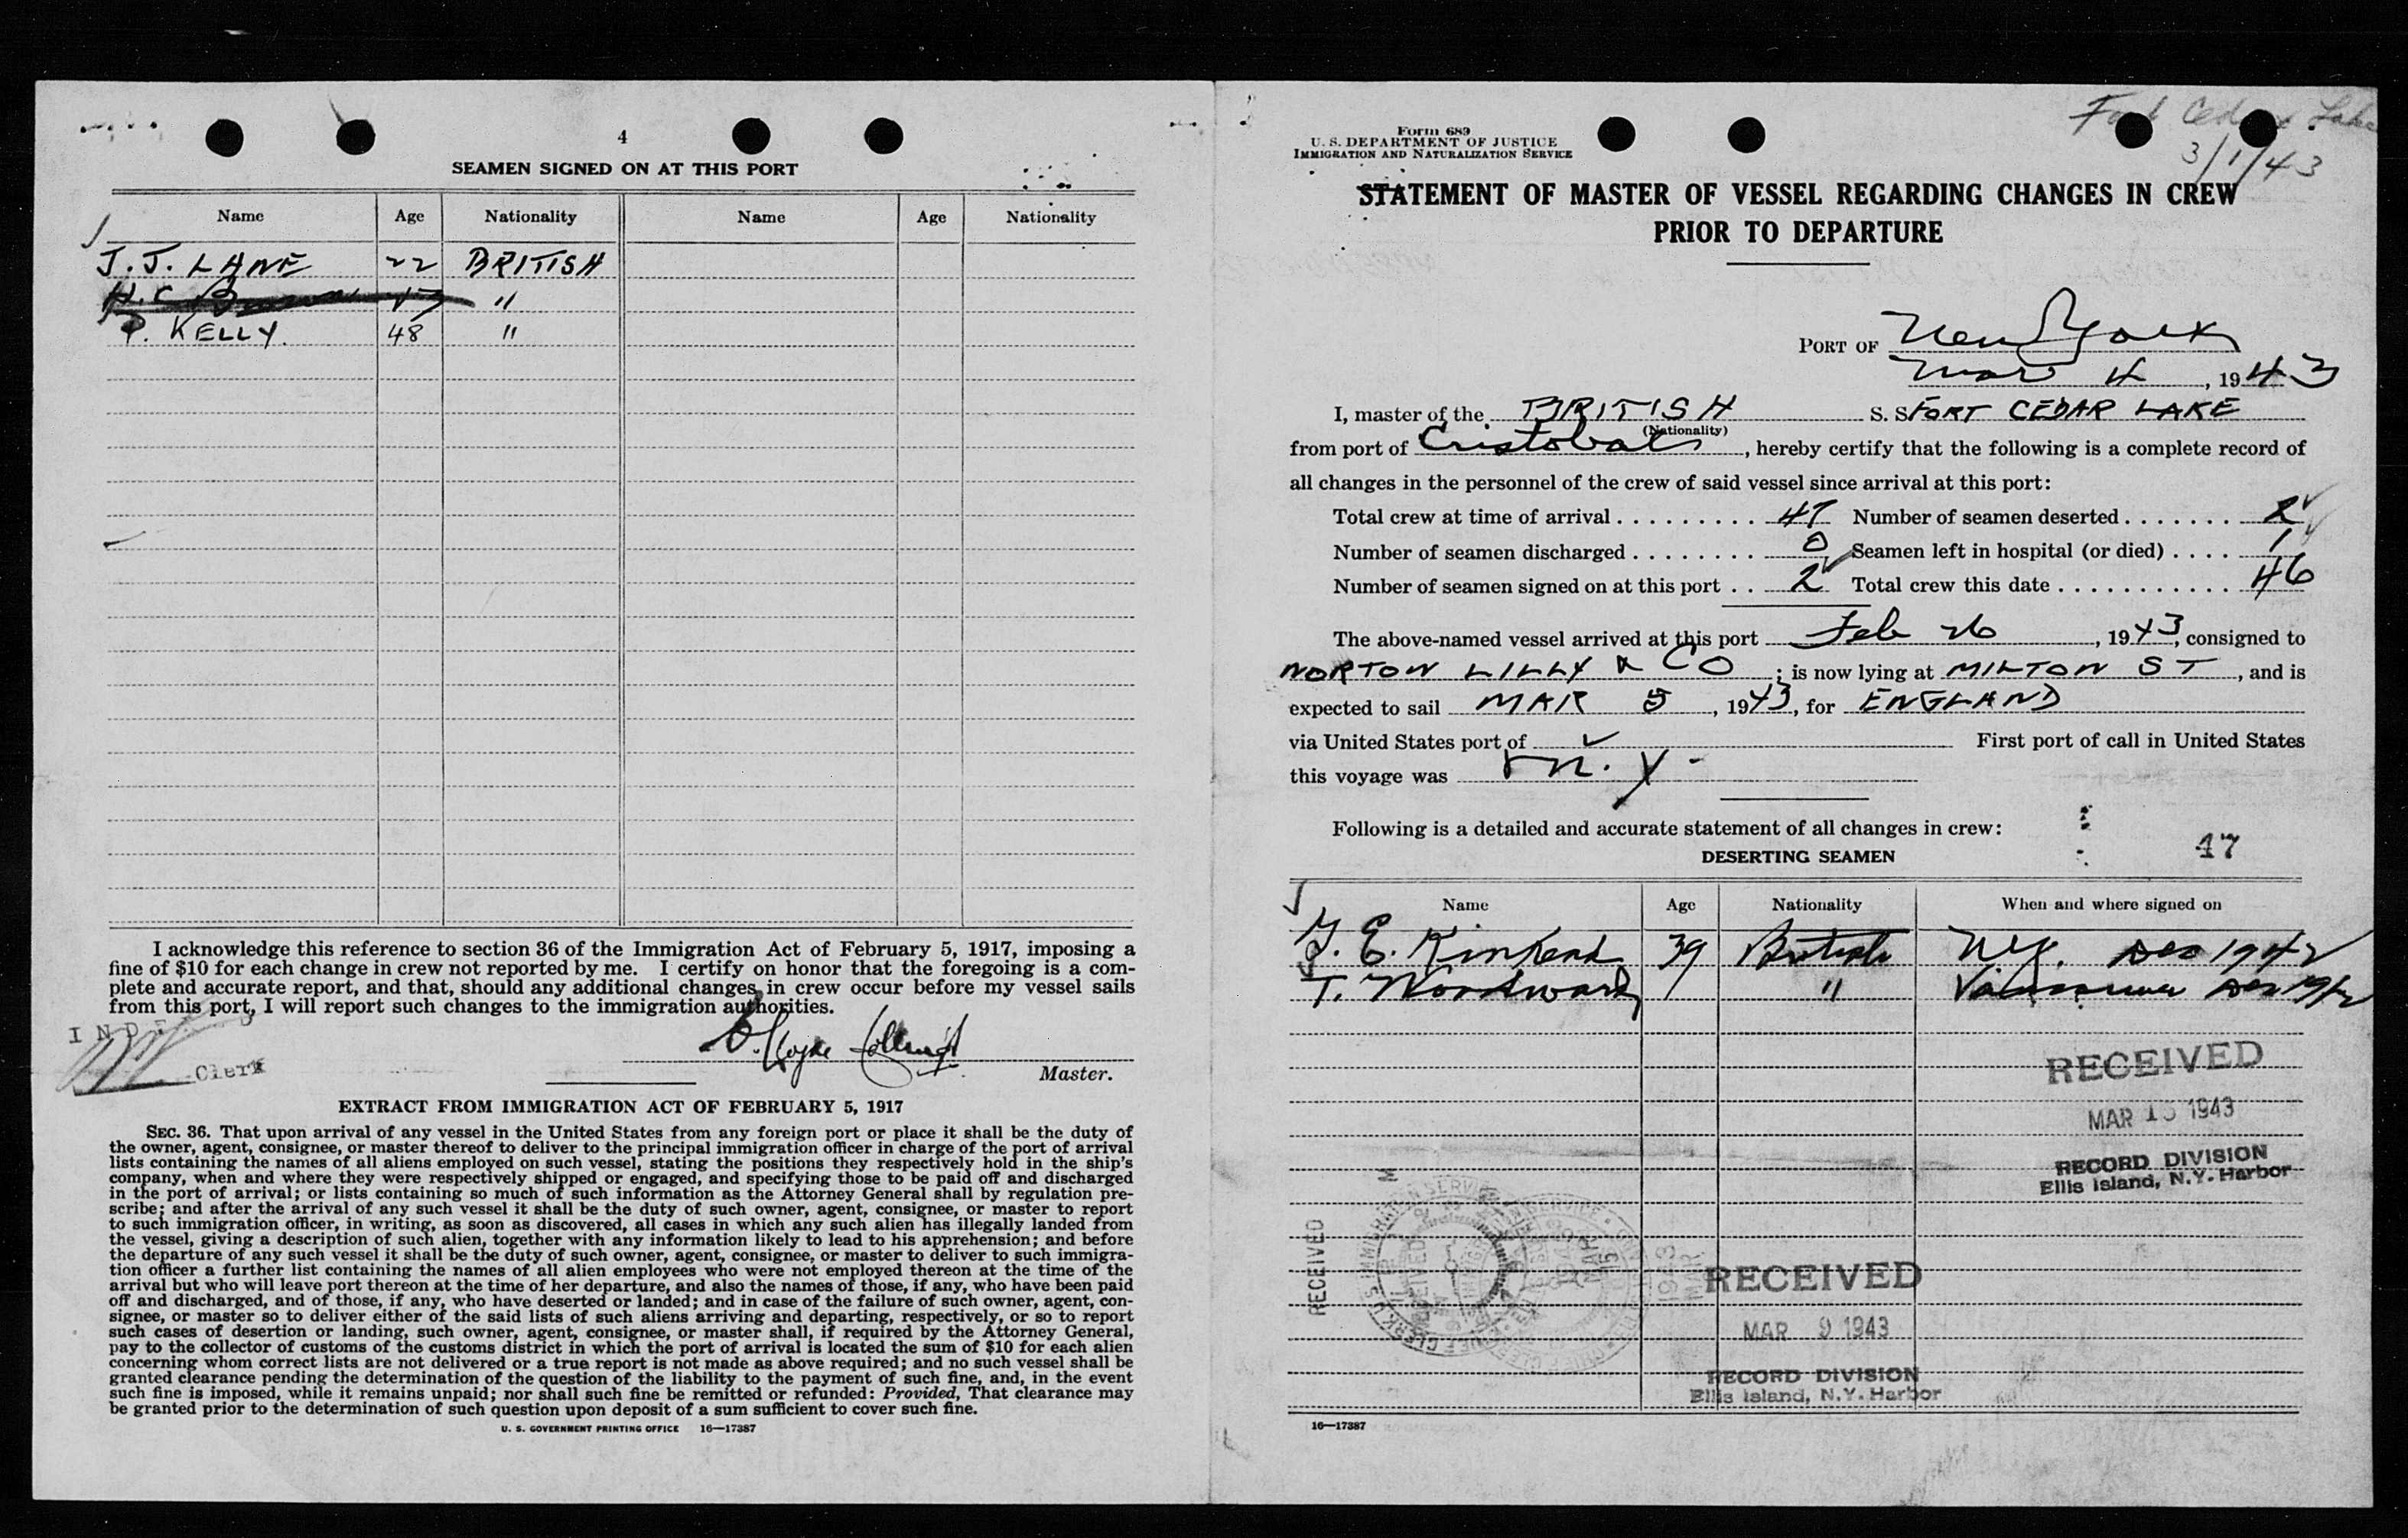 4
SEAMEN SIGNED ON AT THIS PORT
Name Age Nationality Name Age Nationality
J. J. LANE 22 BRITISH
H. C "
P. KELLY. 48 "
I acknowledge this reference to section 36 of the Immigration Act of February 5, 1917, imposing a
fine of $10 for each change in crew not reported by me. I certify on honor that the foregoing is a com-
plete and accurate report, and that, should any additional changes in crew occur before my vessel sails
from this port, I will report such changes to the immigration authorities.
Clerk
Master.
EXTRACT FROM IMMIGRATION ACT OF FEBRUARY 5, 1917
SEC. 36. That upon arrival of any vessel in the United States from any foreign port or place it shall be the duty of
the owner, agent, consignee, or master thereof to deliver to the principal immigration officer in charge of the port of arrival
lists containing the names of all aliens employed on such vessel, stating the positions they respectively hold in the ship's
company, when and where they were respectively shipped or engaged, and specifying those to be paid off and discharged
in the port of arrival; or lists containing so much of such information as the Attorney General shall by regulation pre-
scribe; and after the arrival of any such vessel it shall be the duty of such owner, agent, consignee, or master to report
to such immigration officer, in writing, as soon as discovered, all cases in which any such alien has illegally landed from
the vessel, giving a description of such alien, together with any information likely to lead to his apprehension; and before
the departure of any such vessel it shall be the duty of such owner, agent, consignee, or master to deliver to such immigra-
tion officer a further list containing the names of all alien employees who were not employed thereon at the time of the
arrival but who will leave port thereon at the time of her departure, and also the names of those, if any, who have been paid
off and discharged, and of those, if any, who have deserted or landed; and in case of the failure of such owner, agent, con-
signee, or master so to deliver either of the said lists of such aliens arriving and departing, respectively, or so to report
such cases of desertion or landing, such owner, agent, consignee, or master shall, if required by the Attorney General,
pay to the collector of customs of the customs district in which the port of arrival is located the sum of $10 for each alien
concerning whom correct lists are not delivered or a true report is not made as above required; and no such vessel shall be
granted clearance pending the determination of the question of the liability to the payment of such fine, and, in the event
such fine is imposed, while it remains unpaid; nor shall such fine be remitted or refunded: Provided, That clearance may
be granted prior to the determination of such question upon deposit of a sum sufficient to cover such fine.
U. S. GOVERNMENT PRINTING OFFICE 16—17387
Form 689
U. S. DEPARTMENT OF JUSTICE
IMMIGRATION AND NATURALIZATION SERVICE
Fort Cedar Lake
3/1/43
STATEMENT OF MASTER OF VESSEL REGARDING CHANGES IN CREW
PRIOR TO DEPARTURE
PORT OF New York
Mar 4, 1943
I, master of the BRITISH S. S. FORT CEDAR LAKE
(Nationality)
from port of Cristobal, hereby certify that the following is a complete record of
all changes in the personnel of the crew of said vessel since arrival at this port:
Total crew at time of arrival 47 Number of seamen deserted 2
Number of seamen discharged 0 Seamen left in hospital (or died) 1
Number of seamen signed on at this port 2 Total crew this date 46
The above-named vessel arrived at this port Feb 26, 1943, consigned to
NORTON LILLY & CO; is now lying at MILTON ST, and is
expected to sail MAR 5, 1943, for ENGLAND
via United States port of First port of call in United States
this voyage was N. Y.
Following is a detailed and accurate statement of all changes in crew:
DESERTING SEAMEN
47
Name Age Nationality When and where signed on
E. Kinkead 39 British N.Y. Dec 1942
T. Woodward " Vancouver Dec 1942
RECEIVED
MAR 1943
RECORD DIVISION
Ellis Island, N.Y. Harbor
RECEIVED
RECEIVED
MAR 9 1943
RECORD DIVISION
Ellis Island, N.Y. Harbor
16—17387